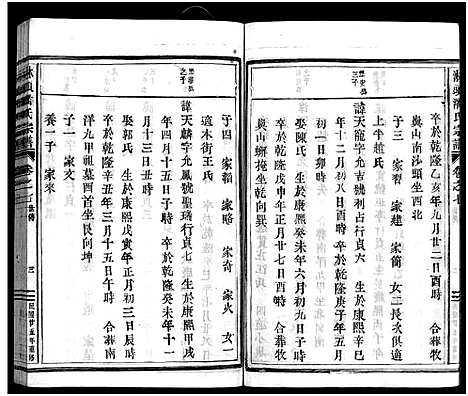 卒於乾隆乙亥年九月廿二日酉時 合葬牧
與山南沙頸坐西北
子三 家智 家建 家簡 女二長次俱適
上半趙氏
諱天龍字允 行貞六 生於康熙辛巳年
十二月初八日酉時 卒於乾隆庚子年五月
初一日卯時
娶陳氏 生於康熙癸未年六月初三日寅時
卒於乾隆戊申年正月廿七日酉時 合葬牧
與山 坐艮向巽
子四 家韜 家略 家奇 家火 女一
適木街王氏
諱天麟字允鳳號聖瑞行貞七 生於康熙甲戌
年四月十五日子時 卒於乾隆癸未年十一
月十三日丑時
娶郭氏 生於康熙戊寅年正月初三日辰時
卒於乾隆辛丑年三月十五日午時 合葬南
洋九甲祖墓西首坐艮向坤
子一 家文
養一子 家來
氏宗譜
卷之七
三
民國廿五年重修